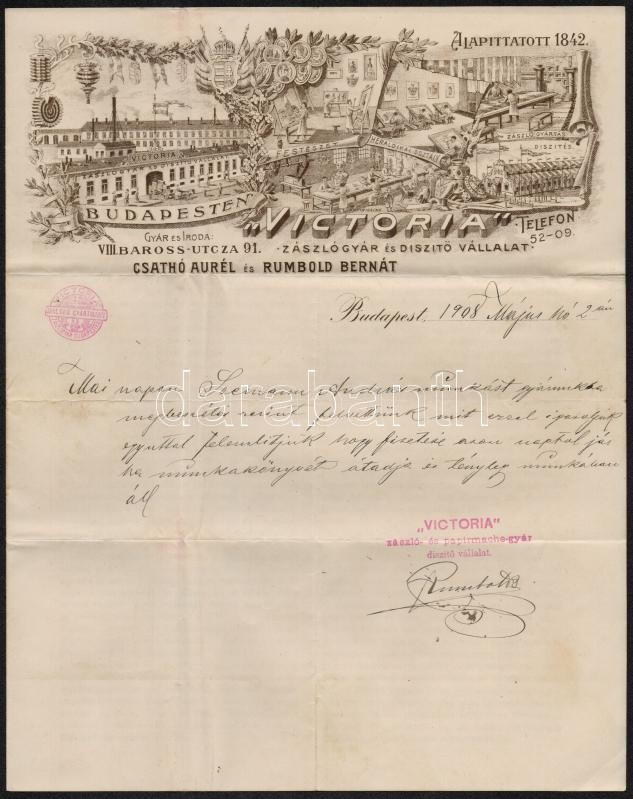 ALAPITTATOTT 1842.
"VICTORIA"
FESTÉSZET
HERALDIKAI OSZTÁLY
ZÁSZLÓGYÁRTÁS
DISZITÉS
BUDAPESTEN
"VICTORIA"
TELEFON
52-09.
GYÁR ÉS IRODA:
VIII. BAROSS-UTCZA 91.
ZÁSZLÓGYÁR ÉS DISZITŐ VÁLLALAT
CSATHÓ AURÉL ÉS RUMBOLD BERNÁT
VICTORIA
Budapest, 1908 Május hó 2 án
Mai napon András munkást gyárunkba
megbeszélés szerint felvettünk mit ezzel igazoljuk
egyuttal jelentjük hogy fizetése azon naptól jár
ha munkakönyvét átadja és tényleg munkában
áll
darabanth.com
"VICTORIA"
zászló- és papirmache-gyár
diszitő vállalat.
Rumbold B.